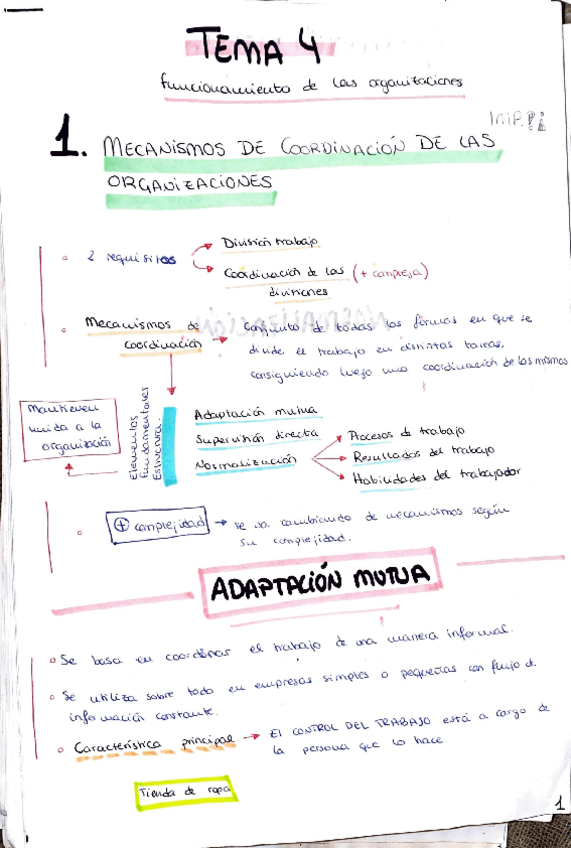 TEMA 4
funcionamiento de las organizaciones
1. MECANISMOS DE COORDINACIÓN DE LAS
ORGANIZACIONES
2 requisitos
División trabajo
Coordinación de las (+ compleja)
divisiones
Mecanismos de
coordinación
Conjunto de todas las formas en que se
divide el trabajo en distintas tareas,
consiguiendo luego una coordinación de las mismas
Mantienen
unida a la
organización
Elementos
fundamentales
Estructura.
Adaptación mutua
Supervisión directa
Normalización
Procesos de trabajo
Resultados del trabajo
Habilidades del trabajador
+ complejidad → se va cambiando de mecanismos según
su complejidad.
ADAPTACIÓN MUTUA
Se basa en coordinar el trabajo de una manera informal.
Se utiliza sobre todo en empresas simples o pequeñas con flujo de
información constante.
Característica principal → El CONTROL DEL TRABAJO está a cargo de
la persona que lo hace
Tienda de ropa
1